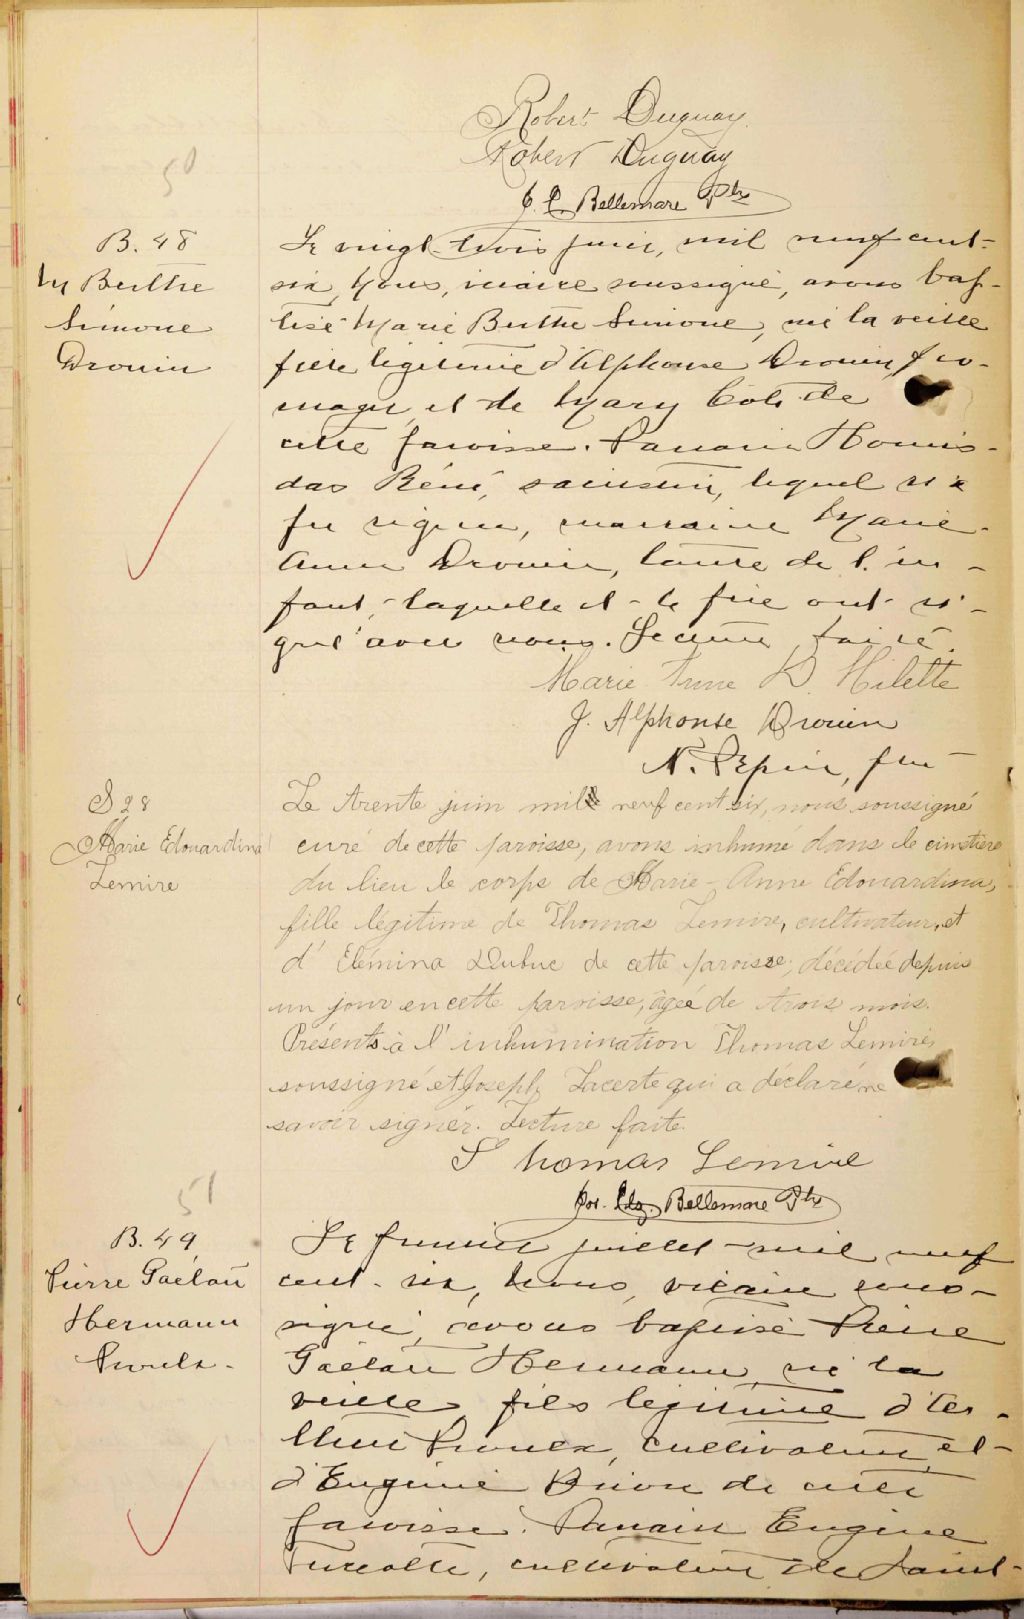 Robert Duguay
Robert Duguay
J. E. Bellemare Ptre
50
B. 48
M Berthe
Simone
Drouin
Le vingt-trois juin, mil neuf cent-
six, Nous, vicaire soussigné, avons bap-
tisé Marie Berthe Simone, née la veille
fille légitime d'Alphonse Drouin fro-
mager, et de Mary Côté de
cette paroisse. Parrain Hormis-
das Réné, sacristin, lequel n'a
pu signer, marraine Marie-
Anne Drouin, tante de l'en-
fant, laquelle et le père ont si-
gné avec nous. Lecture faite.
Marie Anne D. Milette
J. Alphonse Drouin
N. Pepin, ptre
S 28
Marie Edouardina
Lemire
Le trente juin mil neuf cent six, nous, soussigné
curé de cette paroisse, avons inhumé dans le cimetière
du lieu le corps de Marie-Anne Edouardina,
fille légitime de Thomas Lemire, cultivateur, et
d' Elémina Dubuc de cette paroisse, décédée depuis
un jour en cette paroisse, âgée de trois mois.
Présents à l' inhumination Thomas Lemire,
soussigné et Joseph Lacerte qui a déclaré ne
savoir signer. Lecture faite.
Thomas Lemire
Jos. Edg. Bellemare Ptre
51
B. 49
Pierre Gaétan
Hermann
Proulx
Le premier juillet mil neuf
cent-six, Nous, vicaire sous-
signé, avons baptisé Pierre
Gaétan Hermann, né la
veille fils légitime d'
Proulx, cultivateur, et
d'Eugénie de cette
paroisse. Parrain Eugène
Turcotte, cultivateur de Saint-